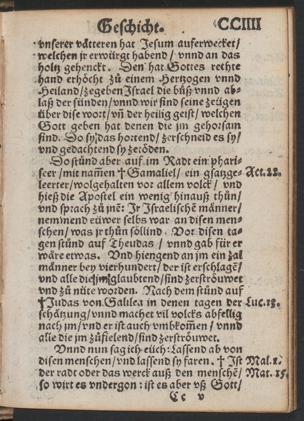 Geschicht. CCIIII
vnserer våtteren hat Jesum auferwecket/
welchen jr erwürgt habend / vnnd an das
holtz gehenckt. Den hat Gottes rechte
hand erhöcht zů einem Hertzogen vnnd
Heiland/ zegeben Israel die bůß vnnd ab-
laß der sünden/ vnnd wir sind seine zeügen
über dise wort/ vn̄ der heilig geist/ welchen
Gott geben hat denen die jm gehorsam
sind. Do sy das hortend/ zerschneid es sy/
vnd gedachtend sy zetöden.
Do stůnd aber auf im Radt ein phari-
seer / mit nam̃ † Gamaliel/ ein gsatzge- Act.22.
leerter/ wolgehalten vor allem volck / vnd
hieß die Apostel ein wenig hinauß thůn/
vnd sprach zů jnẽ: Jr Israelische männer/
nemmend eüwer selbs war an disen men-
schen/ was jr thůn söllind. Vor disen ta-
gen stůnd auf Theudas / vnnd gab für er
wäre etwas. Vnd hiengend an jm ein zal
männer bey vierhundert/ der ist erschlagẽ/
vnd alle die jm glaubtend/ sind zerströuwet
vnd zů nüte worden. Nach dem stůnd auf
† Judas von Galilea in denen tagen der Luc.13.
schätzung/ vnnd machet vil volcks abfellig
nach jm/ vnd er ist auch vmbkom̃en / vnnd
alle die jm zůfielend/ sind zerströuwet.
Vnnd nun sag ich eüch: Lassend ab von
disen menschen/ vnd lassend sy faren. † Ist Mal.1.
der radt oder das werck auß den menschẽ/ Mat.15.
so wirt es vndergon: ist es aber vß Gott/
Cc v